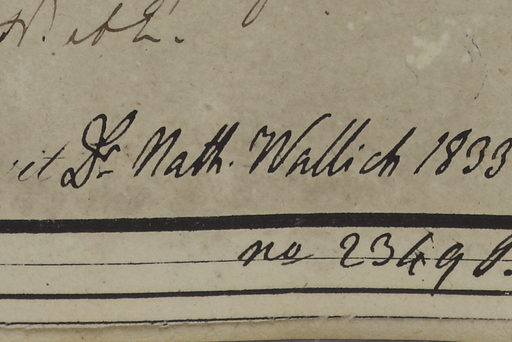 Dr Nath. Wallich 1833
no 2349 B.